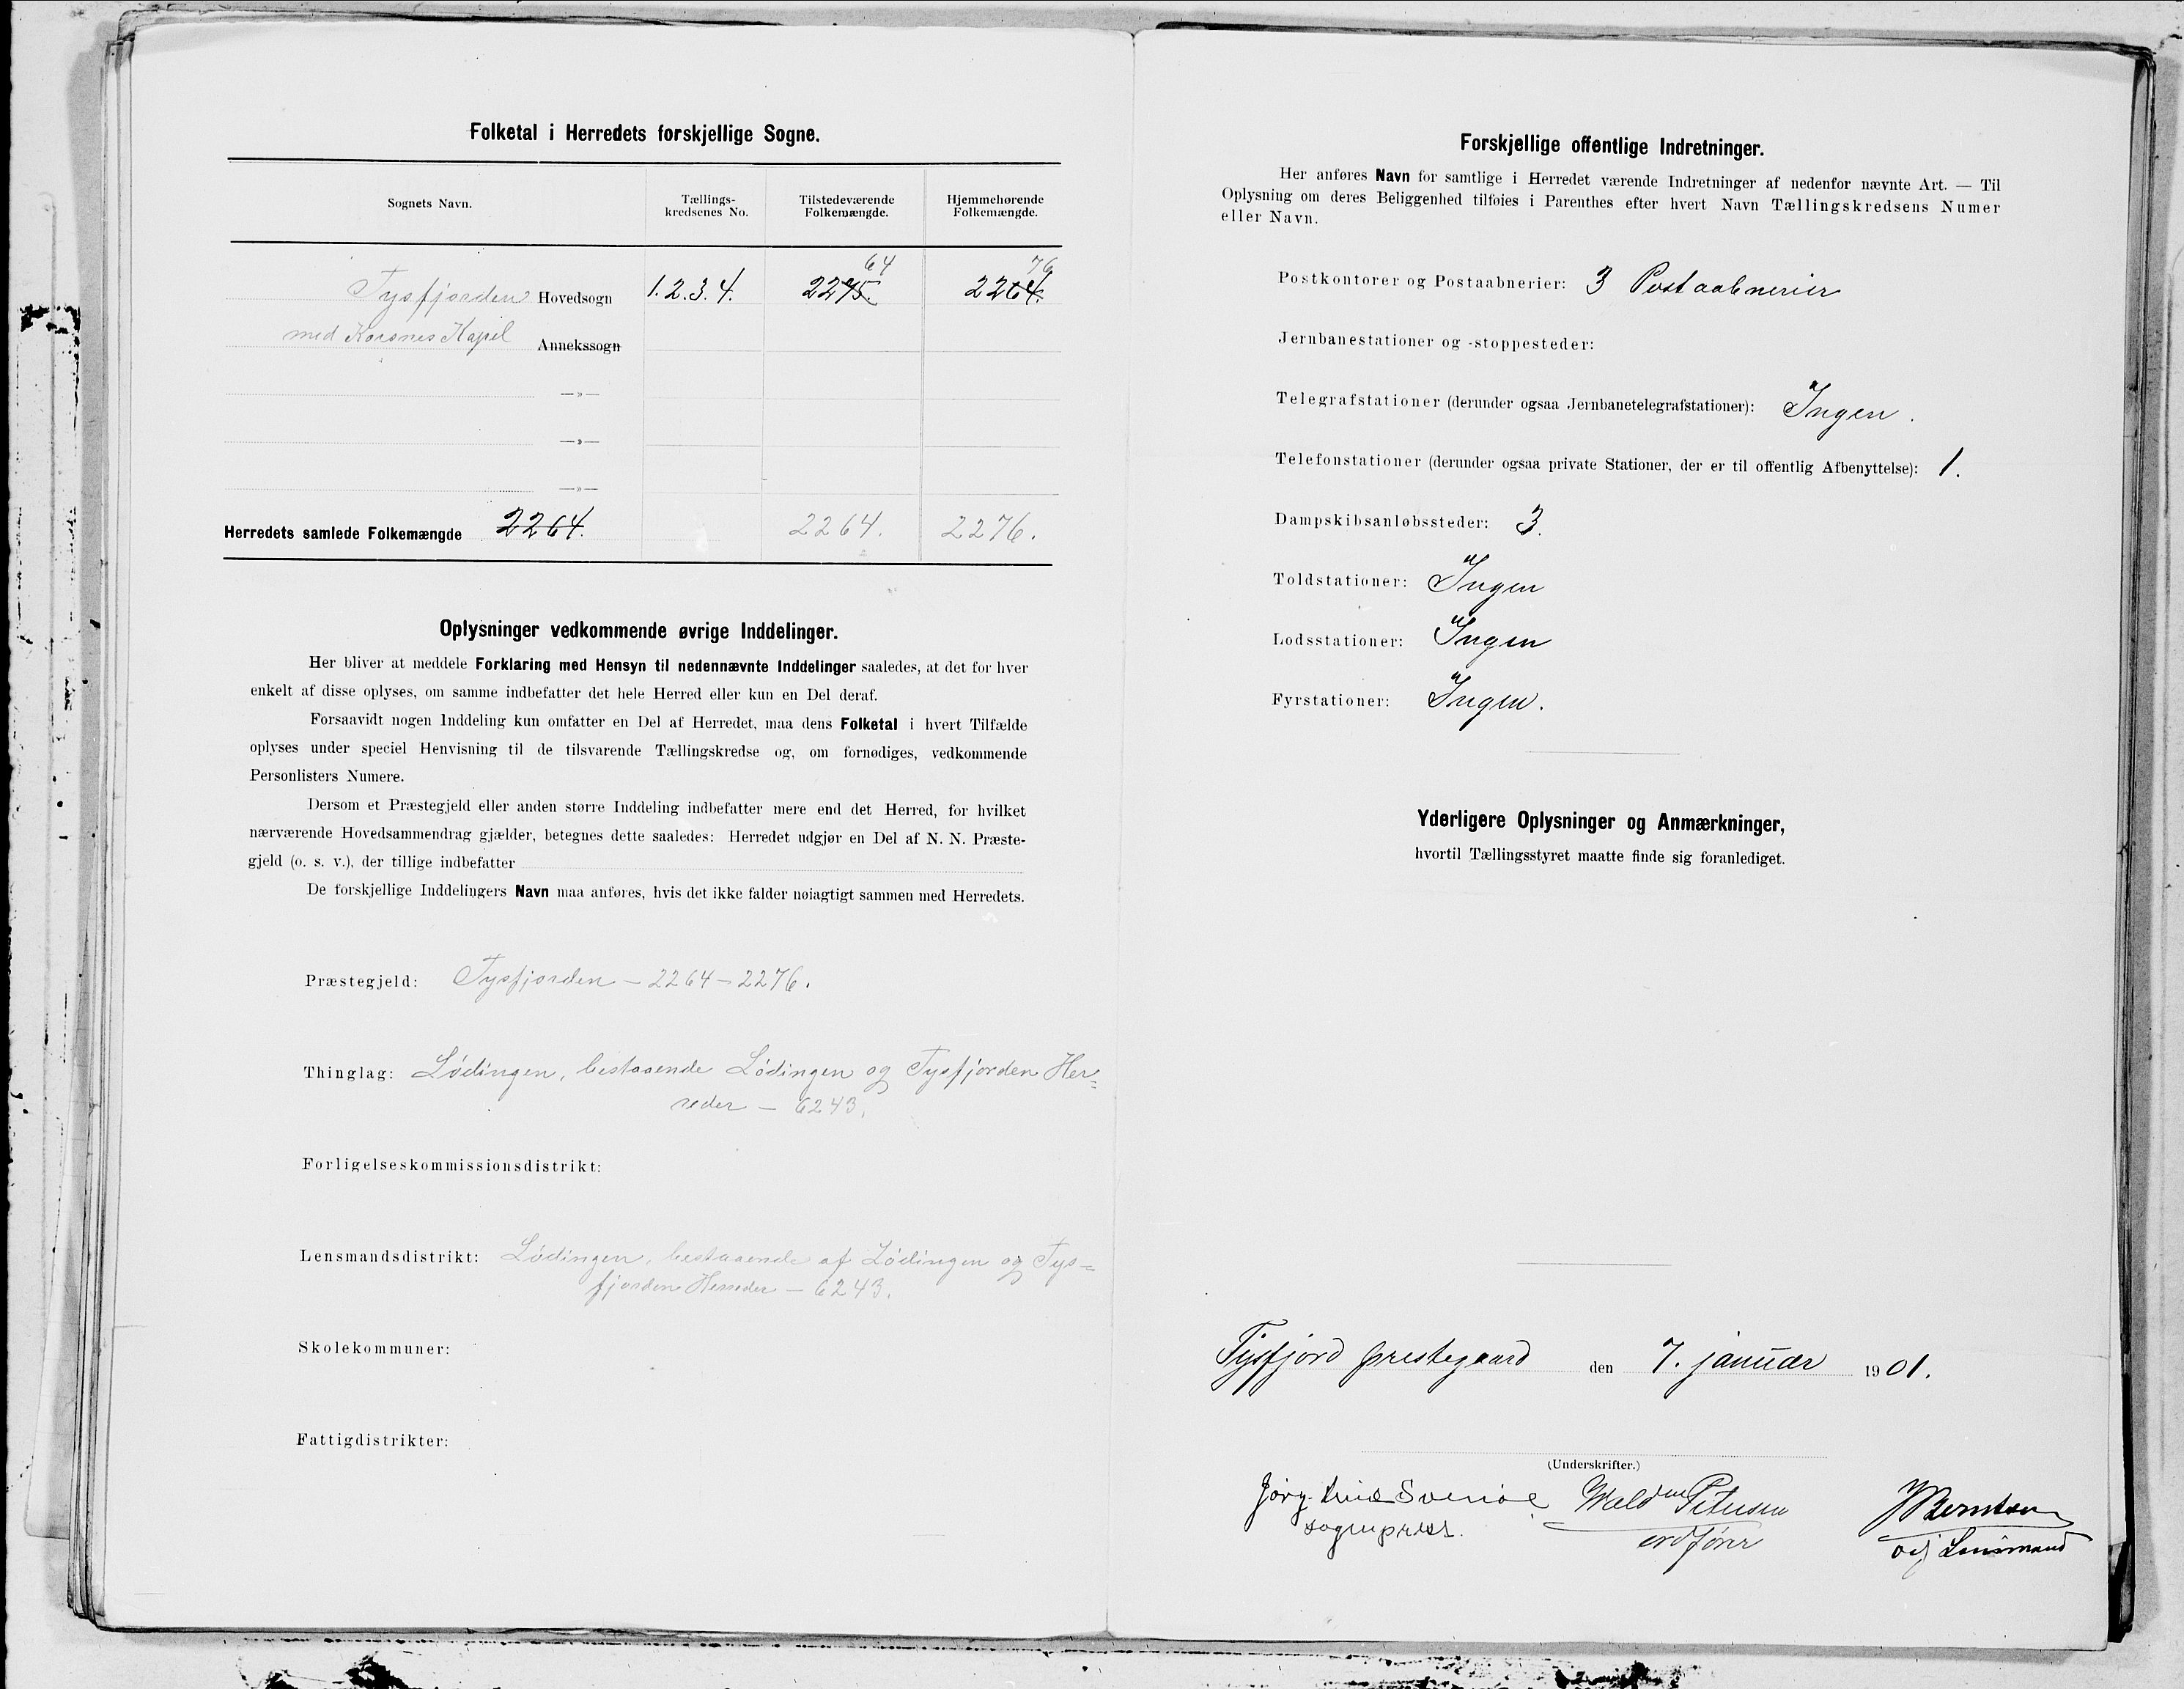 Folketal i Herredets forskjellige Sogne.
Sognets Navn.
Tællings-
kredsenes No.
Tilstedeværende
Folkemængde.
Hjemmehørende
Folkemængde.
64 76
Tysfjorden Hovedsogn 1.2.3.4. 2275. 2264.
med Korsnes Kapel Annekssogn
—»—
—»—
—»—
Herredets samlede Folkemængde 2264. 2264. 2276.
Oplysninger vedkommende øvrige Inddelinger.
Her bliver at meddele Forklaring med Hensyn til nedennævnte Inddelinger saaledes, at det for hver
enkelt af disse oplyses, om samme indbefatter det hele Herred eller kun en Del deraf.
Forsaavidt nogen Inddeling kun omfatter en Del af Herredet, maa dens Folketal i hvert Tilfælde
oplyses under speciel Henvisning til de tilsvarende Tællingskredse og, om fornødiges, vedkommende
Personlisters Numere.
Dersom et Præstegjeld eller anden større Inddeling indbefatter mere end det Herred, for hvilket
nærværende Hovedsammendrag gjælder, betegnes dette saaledes: Herredet udgjør en Del af N. N. Præste-
gjeld (o. s. v.), der tillige indbefatter
De forskjellige Inddelingers Navn maa anføres, hvis det ikke falder nøiagtigt sammen med Herredets.
Præstegjeld: Tysfjorden – 2264 – 2276.
Thinglag: Lødingen, bestaaende Lødingen og Tysfjorden Her=
reder – 6243.
Forligelseskommissionsdistrikt:
Lensmandsdistrikt: Lødingen, bestaaende af Lødingen og Tys=
fjorden Herreder – 6243.
Skolekommuner:
Fattigdistrikter:
Forskjellige offentlige Indretninger.
Her anføres Navn for samtlige i Herredet værende Indretninger af nedenfor nævnte Art. — Til
Oplysning om deres Beliggenhed tilføies i Parenthes efter hvert Navn Tællingskredsens Numer
eller Navn.
Postkontorer og Postaabnerier: 3 Postaabnerier
Jernbanestationer og -stoppesteder:
Telegrafstationer (derunder ogsaa Jernbanetelegrafstationer): Ingen.
Telefonstationer (derunder ogsaa private Stationer, der er til offentlig Afbenyttelse): 1.
Dampskibsanløbssteder: 3.
Toldstationer: Ingen
Lodsstationer: Ingen
Fyrstationer: Ingen.
Yderligere Oplysninger og Anmærkninger,
hvortil Tællingsstyret maatte finde sig foranlediget.
Tysfjord prestegaard den 7. januar 1901.
(Underskrifter.)
Svenige Petersen Berntsen
sogneprest. ordfører Lensmand